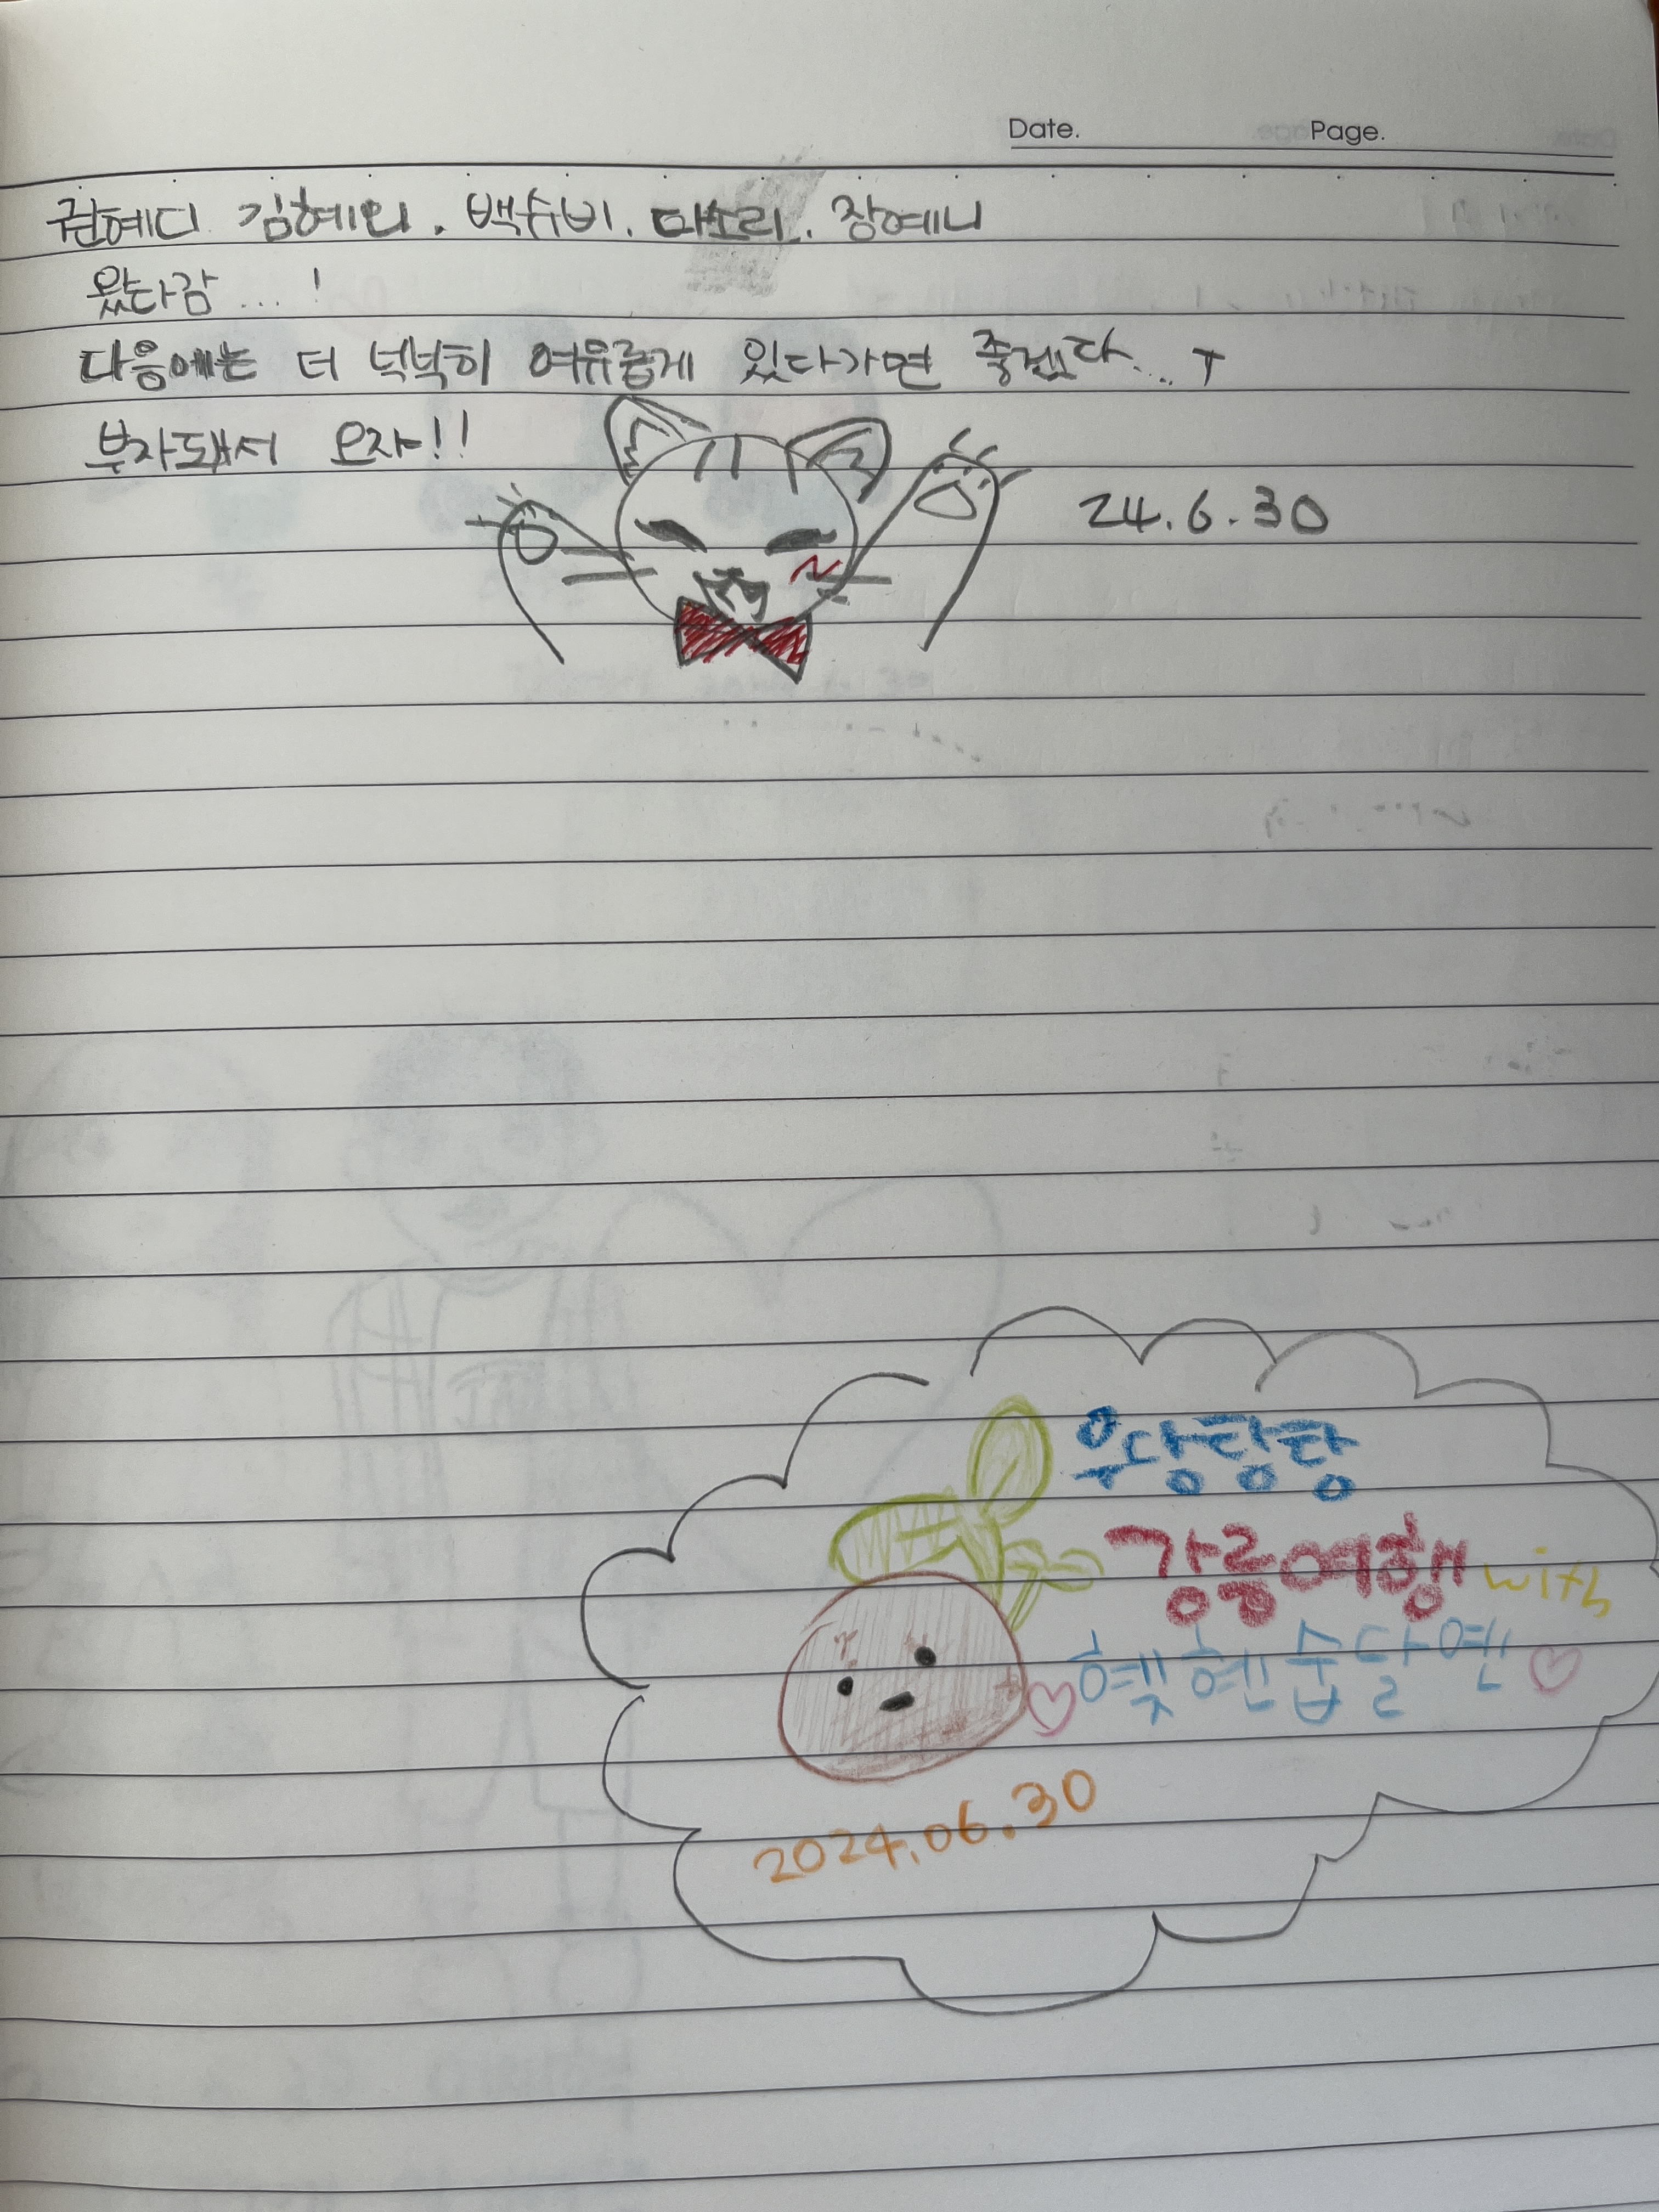 Date. Page.
권예디 김혜인. 백슈비. 마소리. 장예니
왔다감...!
다음에는 더 넉넉히 여유롭게 있다가면 좋겠다... ㅜ
부자돼서 오자!!
24.6.30
우당탕탕
강릉여행 with
♡혜빛혜인숩달옌♡
2024.06.30